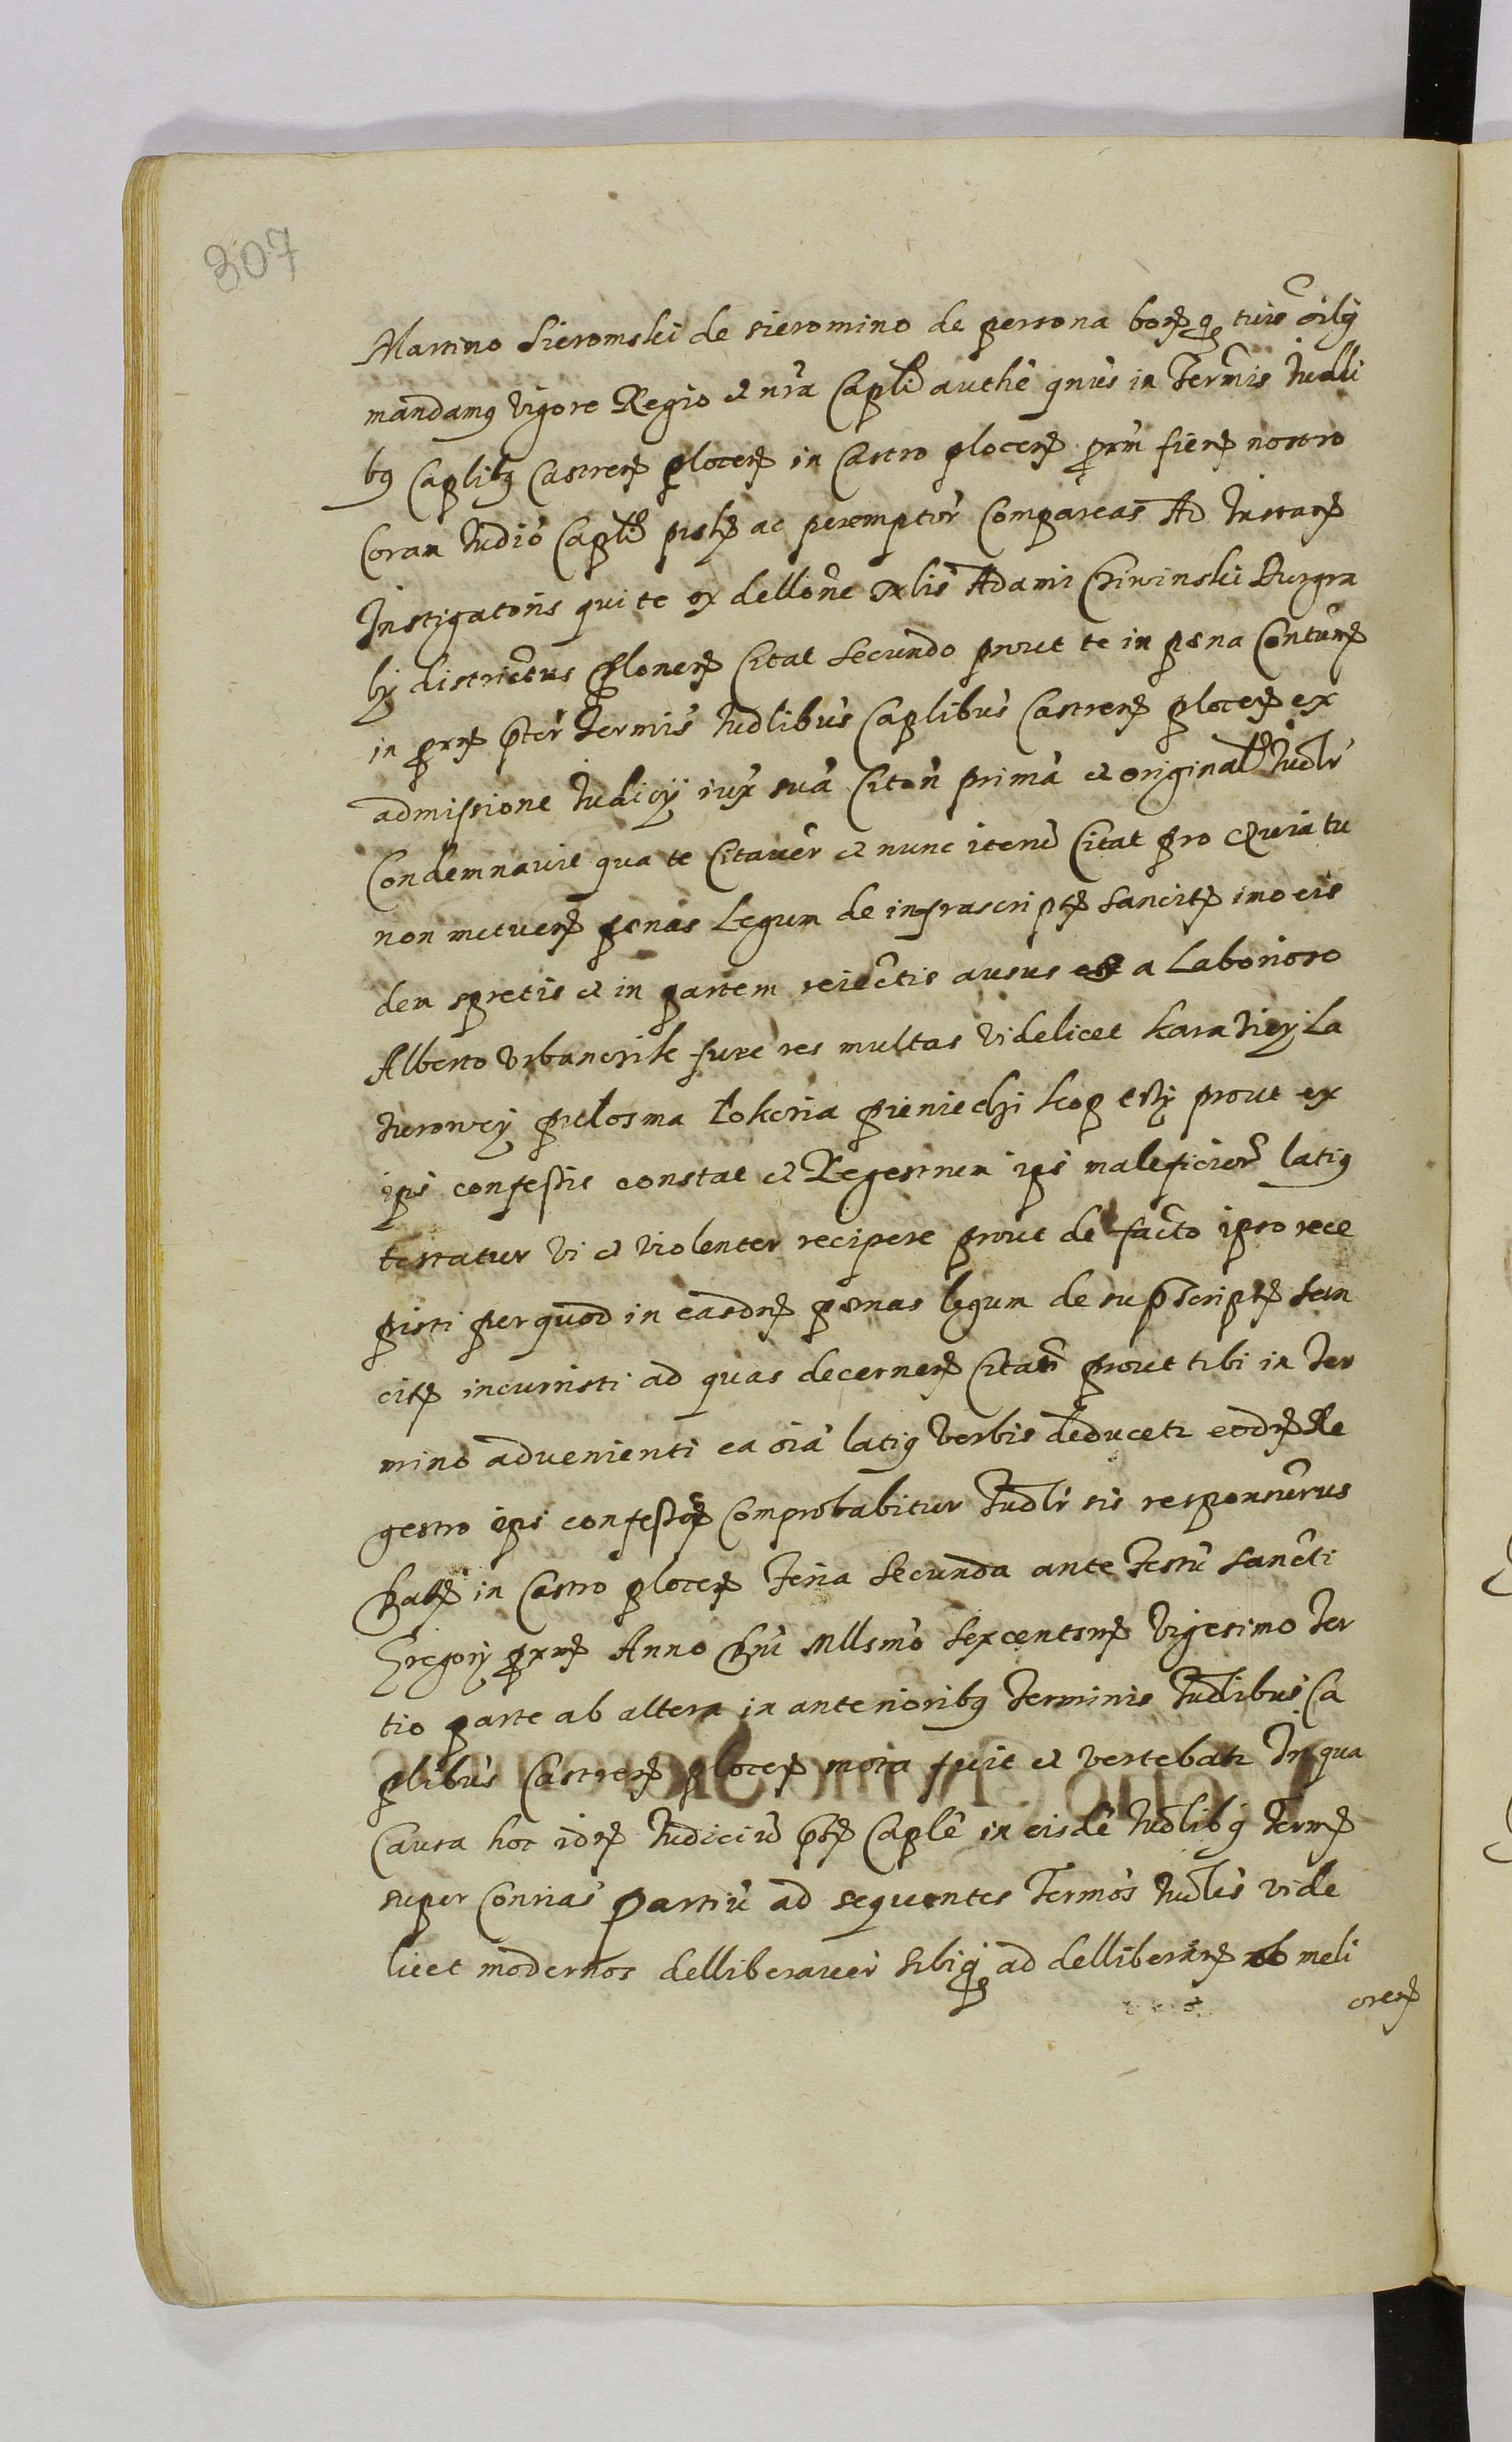 307
Martino Sieromski de sieromino de persona bonisq tuis oibq
mandamq Vigore Regio et nra Capli authe qnus in Termis Iudli
bq Caplibq Castren plocen in Castro plocen prm fien nostro
Coram Iudio Capli pnsly ac peremptor Compareas Ad Instan
Instigatoris qui te ex dellone nblis Adami Chiwinski Burgra
by districtus plonen Citat Secundo prout te in pena Contum
in prn pter Termis Iudlibus Caplibus Castren plocen ex
admissione Iudicij iux sua Citon prima et original Iudlr
Condemnavit qua te Citaver et nunc iteru Citat pro eo quia tu
non metuen penas Legum de infrascript Sancit imo eis
dem spretis et in partem reiectis ausus es a Laborioso
Alberto Urbanczik fure res multas Videlicet kara Ziey La
zurowey pulosma Lokcia pieniedzi kop esly prout ex
ipi confessis constat et Regestrum ipi maleficior latiq
testatur Vi et violenter recipere prout de facto ipso rece
pisti per quod in easdn penas legum de suprascript San
cit incurristi ad quas decernen Citaris prout tibi in Ter
mino advenienti ea oia latiq Verbis deducetr eodn Re
gestro ipi confession Comprobabitur Iudlr sis responsurus
Dat in Castro plocen Feria Secunda ante Festu Sancti
Gregorij prxm Anno Dni Mllsmo Sexcentsm Vigesimo Ter
tio parte ab altera in anterioribq Terminis Iudlibus Ca
plibus Castren plocen mota fuit et vertebatr In qua
Causa hoc idn Iudiciu pns Caple in eisde Iudlibq Term
super Conrias Partiu ad sequentes Termos Iudles vide
licet modernos delliberaver Sibiq ad delliberan ob meli
oren